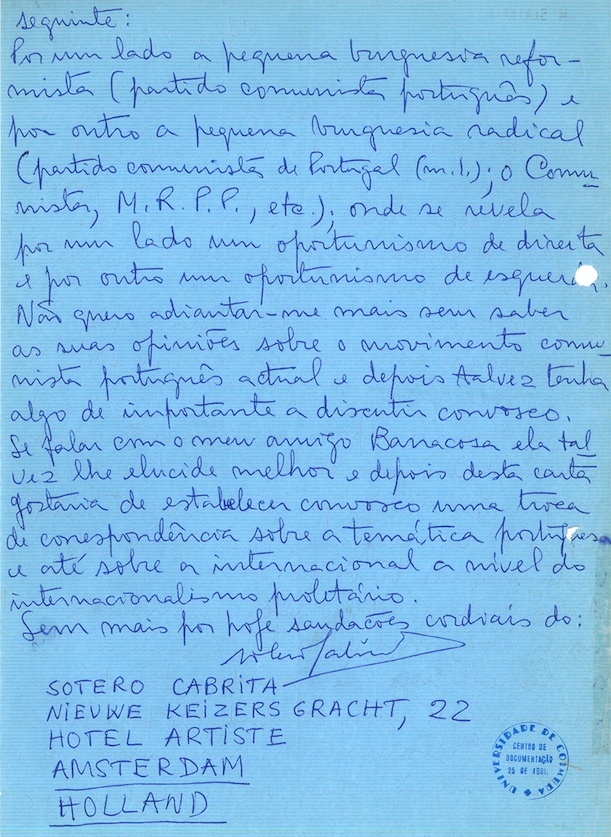 seguinte:
Por um lado a pequena burguesia refor-
mista (partido comunista português) e
por outro a pequena burguesia radical
(partido comunista de Portugal (m.l.); o Comu-
nista, M.R.P.P., etc.); onde se revela
por um lado um oportunismo de direita
e por outro um oportunismo de esquerda.
Não quero adiantar-me mais sem saber
as suas opiniões sobre o movimento comu-
nista português actual e depois talvez tenha
algo de importante a discutir convosco.
Se falar com o meu amigo Barracosa ela tal
vez lhe elucide melhor e depois desta carta
gostaria de estabelecer convosco uma troca
de correspondência sobre a temática portuguesa
e até sobre a internacional a nível do
internacionalismo proletário.
Sem mais por hoje saudações cordiais do:
Sotero Cabrita
SOTERO CABRITA
NIEUWE KEIZERS GRACHT, 22
HOTEL ARTISTE
AMSTERDAM
HOLLAND
UNIVERSIDADE DE COIMBRA
CENTRO DE
DOCUMENTAÇÃO
25 DE ABRIL